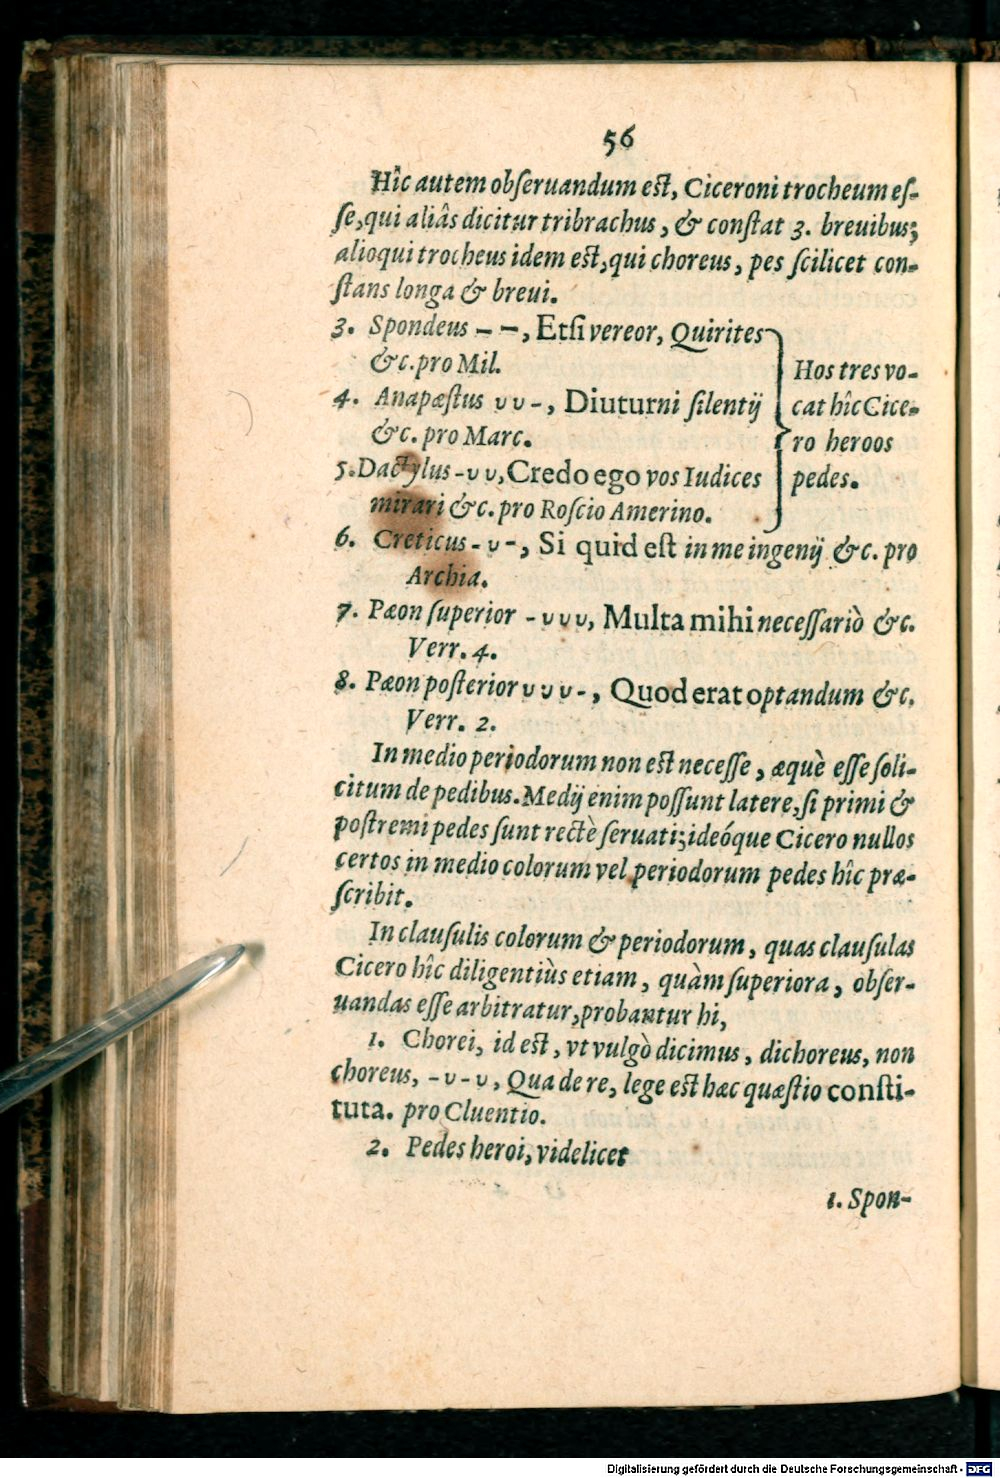 56
Hîc autem obſeruandum eſt, Ciceroni trocheum eſ-
ſe, qui aliâs dicitur tribrachus, & conſtat 3. breuibus;
alioqui trocheus idem eſt, qui choreus, pes ſcilicet con-
ſtans longa & breui.
3. Spondeus – –, Etſi vereor, Quirites
&c. pro Mil.
4. Anapæſtus υ υ -, Diuturni ſilentij
&c. pro Marc.
5. Dactylus - υ υ, Credo ego vos Iudices
mirari &c. pro Roſcio Amerino.
Hos tres vo-
cat hîc Cice-
ro heroos
pedes.
6. Creticus - υ -, Si quid eſt in me ingenij &c. pro
Archia.
7. Pæon ſuperior - υ υ υ, Multa mihi neceſſariò &c.
Verr. 4.
8. Pæon poſterior υ υ υ -, Quod erat optandum &c.
Verr. 2.
In medio periodorum non eſt neceſſe, æquè eſſe ſoli-
citum de pedibus. Medij enim poſſunt latere, ſi primi &
poſtremi pedes ſunt rectè ſeruati; ideóque Cicero nullos
certos in medio colorum vel periodorum pedes hîc præ-
ſcribit.
In clauſulis colorum & periodorum, quas clauſulas
Cicero hîc diligentiùs etiam, quàm ſuperiora, obſer-
uandas eſſe arbitratur, probantur hi,
1. Chorei, id eſt, vt vulgò dicimus, dichoreus, non
choreus, - υ - υ, Qua de re, lege eſt hæc quæſtio conſti-
tuta. pro Cluentio.
2. Pedes heroi, videlicet
1. Spon-
Digitalisierung gefördert durch die Deutsche Forschungsgemeinschaft - DFG